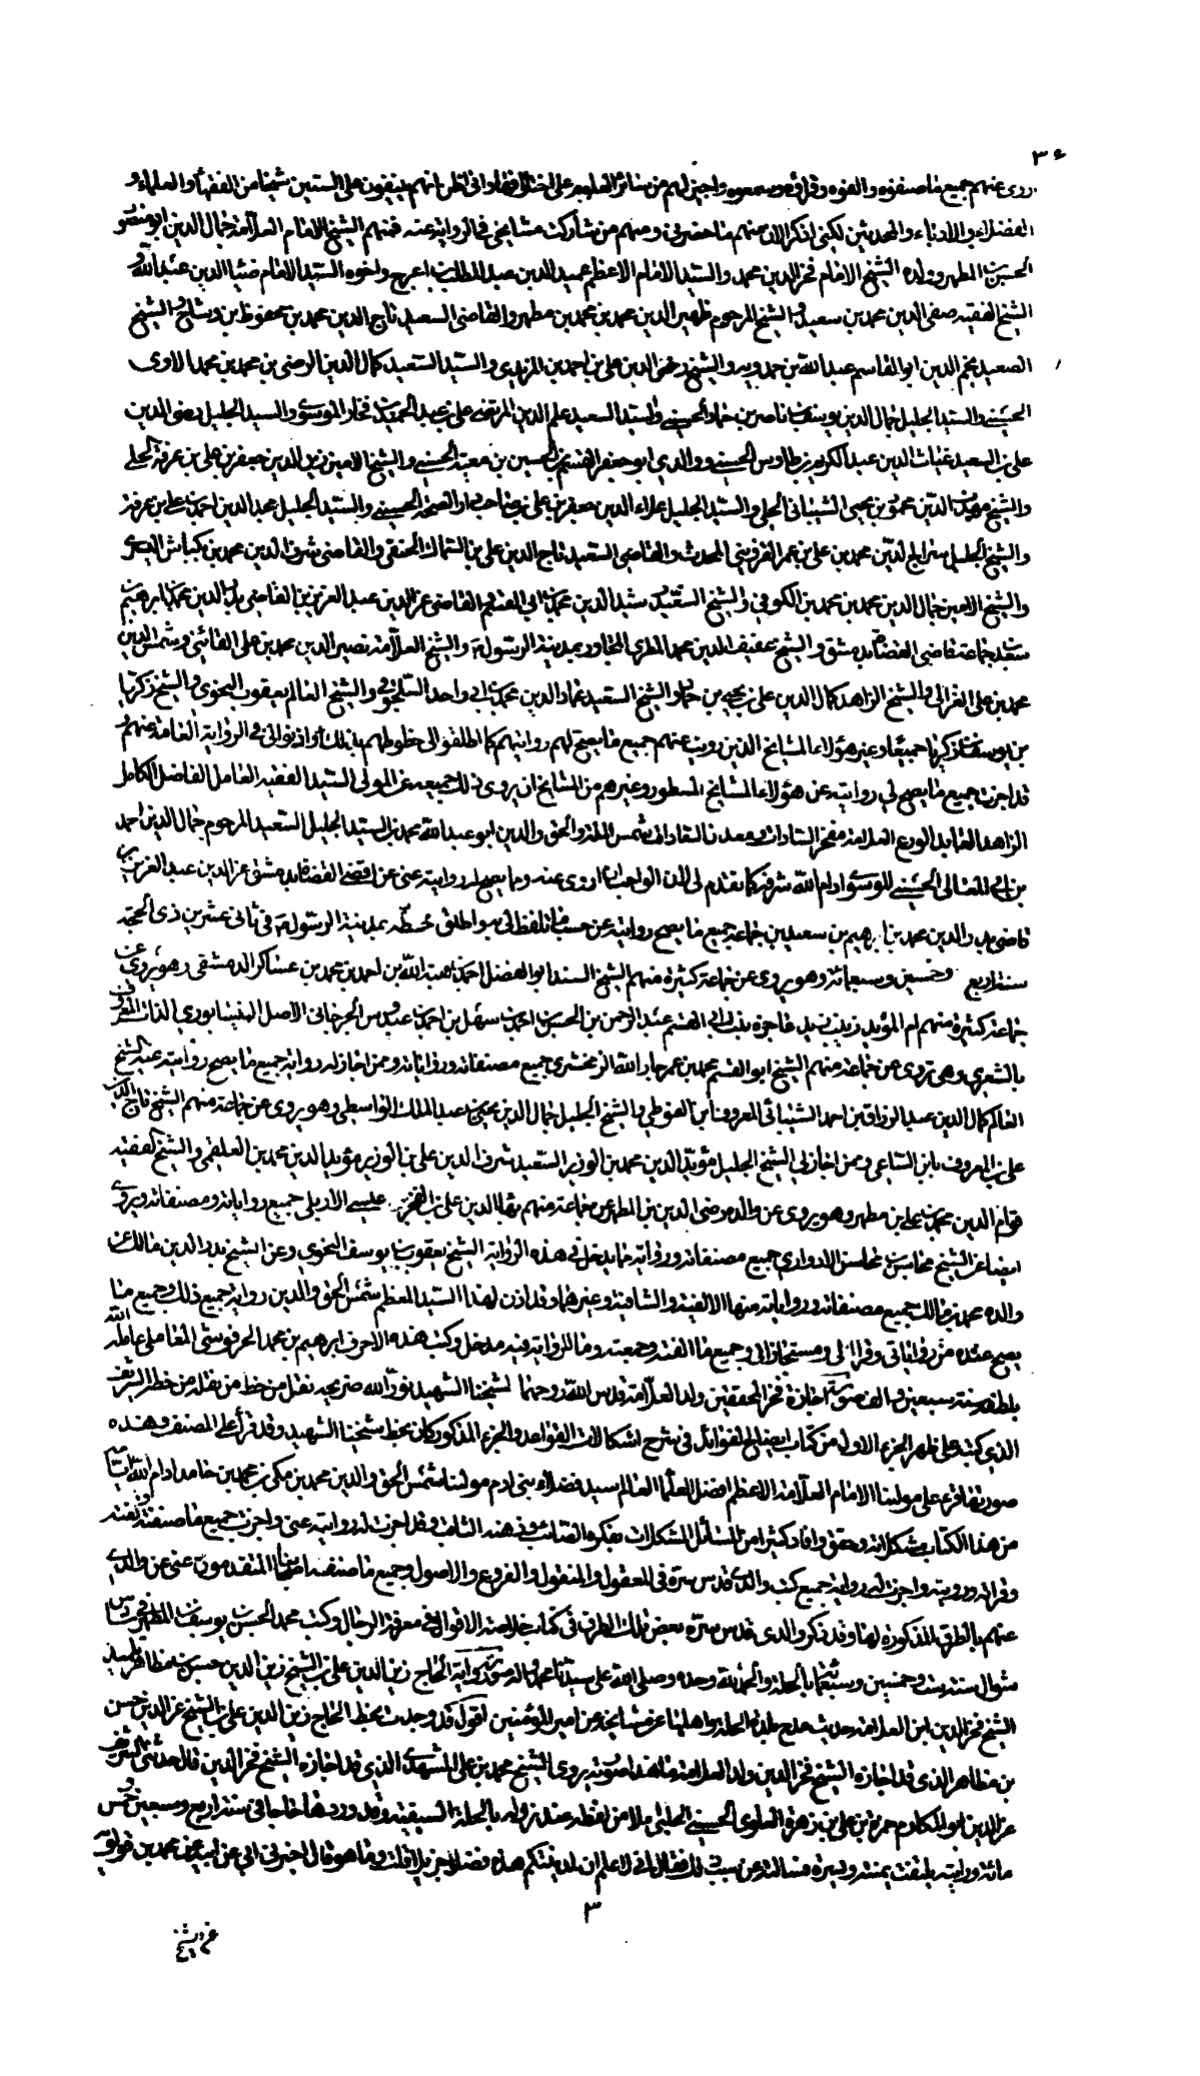 ٣۶
روى عنهم جميع ما صنفوه والفوه وقرأوه وسمعوه واجيز لهم من سائر العلوم على اختلافها وانى اظن انهم ينيفون على الستين شيخا من الفقهاء والعلماء و
الفضلاء والادباء والمحدثين لكنى اذكر الان منهم ما حضرنى ومنهم من شاركت مشايخى فى الرواية عنه فمنهم الشيخ الامام العلامة جمال الدين ابو منصور
الحسن بن المطهر وولده الشيخ الامام فخر الدين محمد والسيد الامام الاعظم عميد الدين عبد المطلب بن اعرج واخوه السيد الامام ضياء الدين عبد الله و
الشيخ الفقيه صفى الدين محمد بن سعيد والشيخ المرحوم ظهير الدين محمد بن محمد بن مطهر والقاضى السعيد تاج الدين محمد بن محفوظ بن وشاح والشيخ
الصعيد نجم الدين ابو القاسم عبد الله بن حمدويه والشيخ رضى الدين على بن احمد بن المزيدى والسيد السعيد كمال الدين الرضى بن محمد بن محمد الاوى
الحسينى والسيد الجليل جمال الدين يوسف بن ناصر بن حماد الحسينى والسيد السعيد علم الدين المرتضى على بن عبد الحميد بن فخار الموسوى والسيد الجليل رضى الدين
على بن السعيد غياث الدين عبد الكريم بن طاوس الحسنى ووالدى ابو جعفر القسم بن الحسين بن معية الحسنى والشيخ الامين زين الدين جعفر بن على بن عرفة الحلى
والشيخ مهذب الدين محمود بن يحيى الشيبانى الحلى والسيد الجليل علاء الدين جعفر بن على بن صاحب دار الصخر الحسينى والسيد الجليل مجد الدين احمد بن على بن عرفة
والشيخ الجليل سراج الدين محمد بن على بن عمر القزوينى المحدث والقاضى السعيد تاج الدين على بن السماك الحنفى والقاضى شرف الدين محمد بن كباش
والشيخ الامين جمال الدين محمد بن محمد بن الكوفى والشيخ السعيد سديد الدين محمد بن ابى القسم القاضى عز الدين عبد العزيز بن القاضى بدر الدين محمد بن ابرهيم بن
سعد بن جماعة قاضى القضاة بدمشق والشيخ عفيف الدين محمد المطرى المجاور بمدينة الرسول والشيخ العلامة نصير الدين محمد بن على القاشى وشمس الدين
محمد بن على الغزالى والشيخ الزاهد كمال الدين على بن يحيى بن حماد والشيخ السعيد عماد الدين محمد بن ابى واحد والشيخ العالم يعقوب النحوى والشيخ زكريا
بن يوسف بن زكريا جميعا وغير هؤلاء المشايخ الذين رويت عنهم جميع ما يصح لهم روايتهم كما اطلقوا لى خطوطهم بذلك واذنوا لى فى الرواية العامة عنهم و
قد اجزت جميع ما يصح لى روايته عن هؤلاء المشايخ المسطور وغيرهم من المشايخ ان يروى ذلك جميعه عنى المولى السيد الفقيه العامل الفاضل الكامل
الزاهد العابد الورع العلامة مفخر السادات ومعدن السعادات شمس الملة والحق والدين ابو عبد الله محمد بن السيد الجليل السعيد المرحوم جمال الدين احمد
بن ابى المعالى الحسينى الموسوى ادام الله شرفه كما تقدم لى الان الواجب ان اروى عنه ومما يصح له روايته عنى عن اقضى القضاة بدمشق عز الدين عبد العزيز بن
قاضى بدر الدين محمد بن ابرهيم بن سعد بن جماعة جميع ما يصح روايته عن حسب ما تلفظ لى به واطلق خطه بمدينة الرسول فى ثانى عشرين ذى الحجة
سنة اربع وخمسين وسبعمائة وهو يروى عن جماعة كثيرة منهم الشيخ السند ابو الفضل احمد بن هبة الله بن احمد بن محمد بن عساكر الدمشقى وهو يروى عن
جماعة كثيرة منهم ام المؤيد زينب بنت ابى القسم عبد الرحمن بن الحسن بن احمد بن سهل بن احمد بن عبدوس الجرجانى الاصل النيسابورى الدار المعروف
بالشعرى وهى تروى عن جماعة منهم الشيخ ابو القسم محمد بن عمر جار الله الزمخشرى جميع مصنفاته ورواياته وممن اجاز له رواية جميع ما يصح روايته عنه الشيخ
العالم كمال الدين عبد الرزاق بن احمد الشيبانى المعروف بابن الفوطى والشيخ الجليل جمال الدين يحيى بن عبد الملك الواسطى وهو يروى عن جماعة منهم الشيخ تاج الدين
على بن المعروف بابن الساعى وممن اجاز لى الشيخ الجليل مؤيد الدين محمد بن الوزير السعيد شرف الدين على بن الوزير مؤيد الدين محمد بن العلقمى والشيخ الفقيه
قوام الدين محمد بن على بن مطهر وهو يروى عن والده رضى الدين بن المطهر عن جماعة منهم بهاء الدين على بن الفخر عيسى الاربلى جميع رواياته ومصنفاته ويروى
ايضا عن الشيخ محاسن جميع مصنفاته وروايته فما يدخل فى هذه الرواية الشيخ يعقوب بن يوسف النحوى وعن الشيخ بدر الدين مالك عن
والده محمد بن مالك جميع مصنفاته ورواياته منها الالفية والشافية وغيرهما وقد اذن لهذا السيد المعظم شمس الحق والدين رواية جميع ذلك وجميع ما
يصح عنده من رواياتى وقراآتى ومستجازاتى وجميع ما الفته وجمعته وما للرواية فيه مدخل وكتب هذه الاحرف ابرهيم بن محمد الحرفوشى العاملى عامله الله
بلطفه سنة سبعين والف صورة اجازة فخر المحققين ولد العلامة قدس الله روحهما لشيخنا الشهيد نور الله ضريحه نقل من خط من نقله من خطه الشريف
الذى كتبه على ظهر الجزء الاول من كتاب ايضاح الفوائد فى شرح اشكالات القواعد والجزء المذكور كان بخط شيخنا الشهيد وقد قرأ على المصنف وهذه
صورتها قرأ على مولينا الامام العلامة الاعظم افضل العلماء العالم سيد فضلاء بنى ادم مولينا شمس الحق والدين محمد بن مكى بن محمد بن حامد ادام الله ايامه
من هذا الكتاب مشكلاته وحقق وافاد كثيرا من المسائل المشكلات بفكره الصائب وذهنه الثاقب وقد اجزت له روايته عنى واجزت جميع ما صنفته والفته
وقرأته ورويته واجزت له رواية جميع كتب والدى قدس سره فى المعقول والمنقول والفروع والاصول وجميع ما صنفه اصحابنا المتقدمون عنى عن والدى
عنهم بالطرق المذكورة لها وقد ذكر والدى قدس سره بعض تلك الطرق فى كتاب خلاصة الاقوال فى معرفة الرجال وكتب محمد بن الحسن بن يوسف بن المطهر فى سادس
شوال سنة ست وخمسين وسبعمائة بالحلة والحمد لله وحده وصلى الله على سيدنا محمد واله صورة رواية الحاج زين الدين على بن الشيخ زين الدين حسن بن مظاهر تلميذ
الشيخ فخر الدين ابن العلامة حديث مدح بلدة الحلة واهلها عن مشايخه عن امير المؤمنين اقول قد وجدت بخط الحاج زين الدين على بن الشيخ عز الدين حسن
بن مظاهر الذى قد اجازه الشيخ فخر الدين ولد العلامة ما هذا صورته يروى الشيخ محمد بن على المشهدى الذى قد اجازه الشيخ فخر الدين قال حدثنى الشريف
عز الدين ابو المكارم حمزة بن على بن زهرة العلوى الحسينى الحلبى املا من لفظه عند نزوله بالحلة السيفية وقد وردها حاجا فى سنة اربع وسبعين وخمس
مائة ورايته يلتفت يمنة ويسرة فسالته عن سبب ذلك فقال انى لاعلم ان لمدينتكم هذه فضلا جزيلا قلت وما هو قال اخبرنى ابى عن ابيه عن محمد بن قولويه
٣